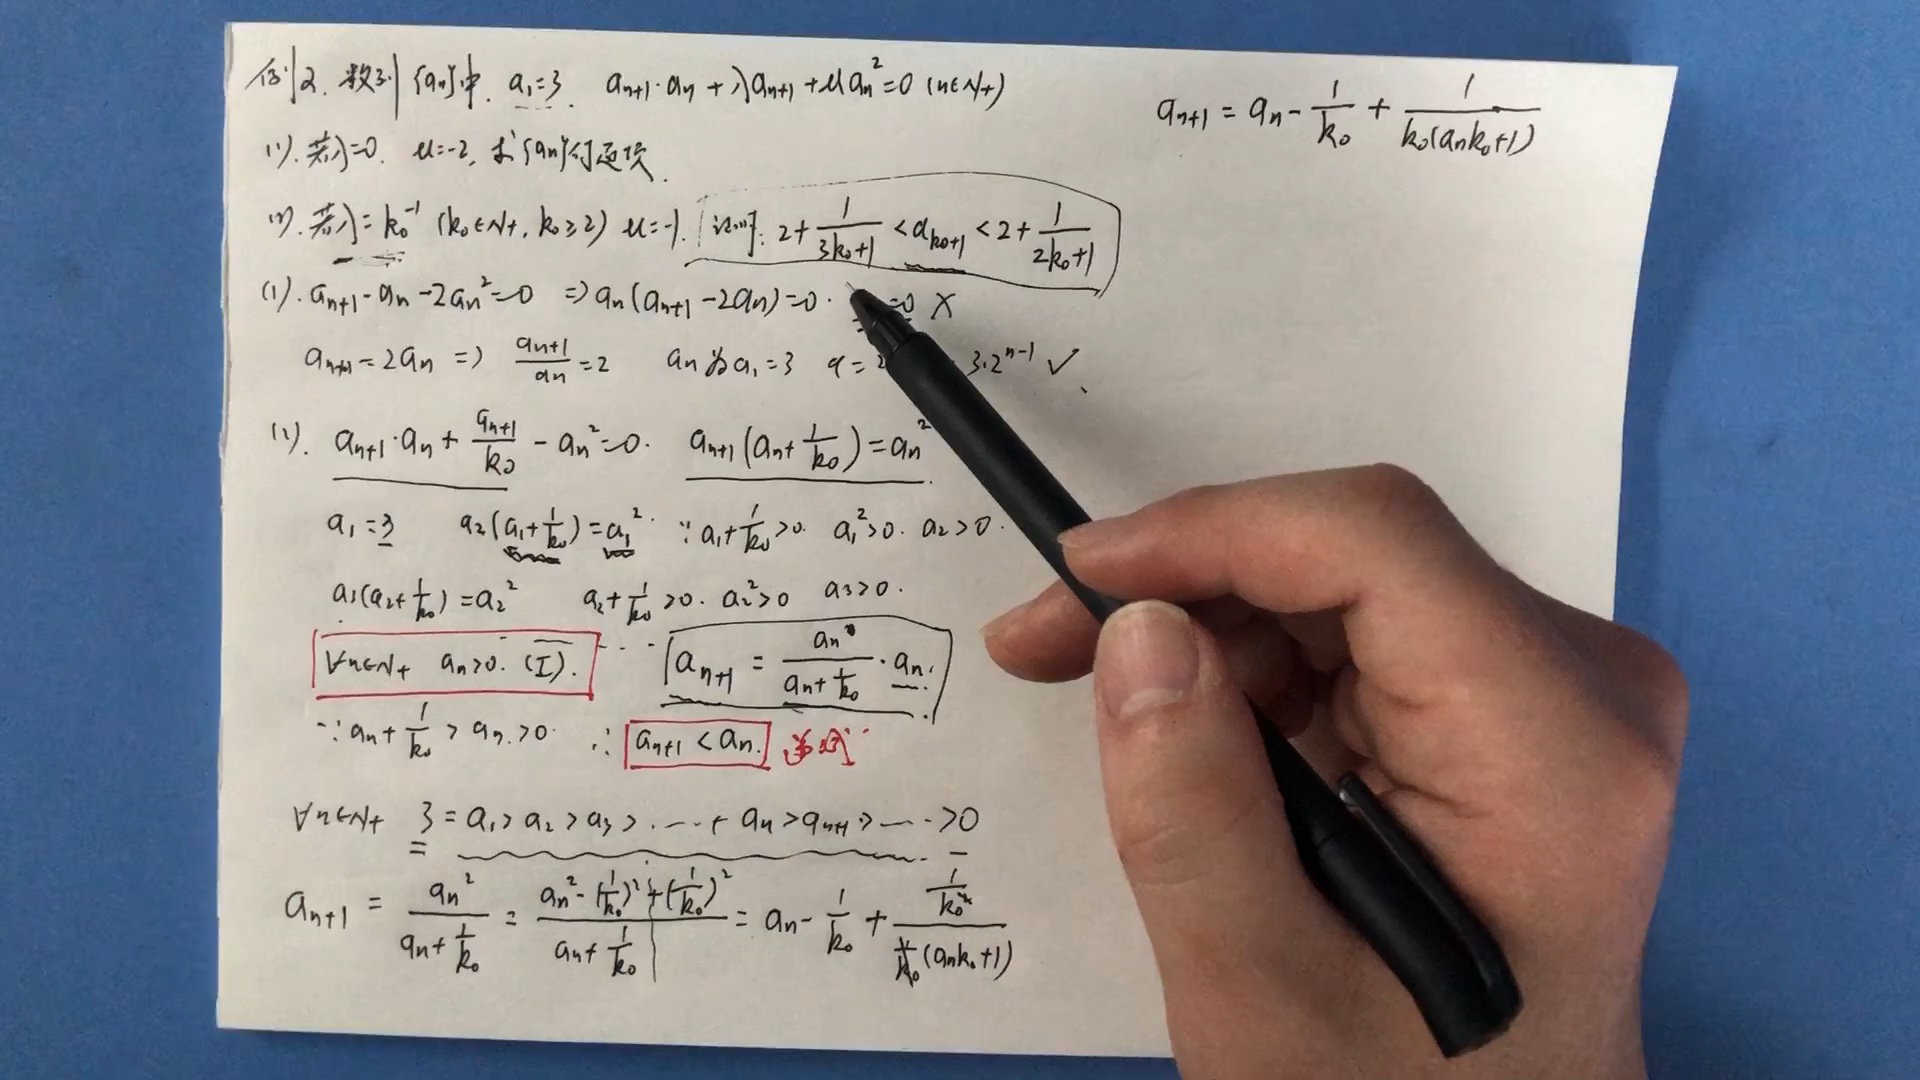 例2. 数列{an}中. a₁=3 aₙ₊₁·aₙ+λaₙ₊₁+μaₙ²=0 (n∈N₊)
(1). 若λ=0. μ=-2, 求{an}的通项.
(2). 若λ=k₀⁻¹ (k₀∈N₊, k₀≥2) μ=-1. 证明: 2+1/(3k₀+1)<a_{k₀+1}<2+1/(2k₀+1)
(1). aₙ₊₁·aₙ-2aₙ²=0 ⇒aₙ(aₙ₊₁-2aₙ)=0. =0 X
aₙ₊₁=2aₙ ⇒ aₙ₊₁/aₙ=2 aₙ为a₁=3 q=2 3·2ⁿ⁻¹ ✓.
(2). aₙ₊₁·aₙ+aₙ₊₁/k₀-aₙ²=0. aₙ₊₁(aₙ+1/k₀)=aₙ².
a₁=3 a₂(a₁+1/k₀)=a₁². ∵a₁+1/k₀>0. a₁²>0. a₂>0.
a₃(a₂+1/k₀)=a₂² a₂+1/k₀>0. a₂²>0 a₃>0.
∀n∈N₊ aₙ>0. (I). ··· aₙ₊₁=aₙ/(aₙ+1/k₀)·aₙ.
∵aₙ+1/k₀>aₙ>0. ∴aₙ₊₁<aₙ. 递减
∀n∈N₊ 3=a₁>a₂>a₃>·····aₙ>aₙ₊₁>····>0
aₙ₊₁=aₙ²/(aₙ+1/k₀)=(aₙ²-(1/k₀)²+(1/k₀)²)/(aₙ+1/k₀)=aₙ-1/k₀+(1/k₀²)/(1/k₀(aₙk₀+1))
aₙ₊₁=aₙ-1/k₀+1/(k₀(aₙk₀+1))